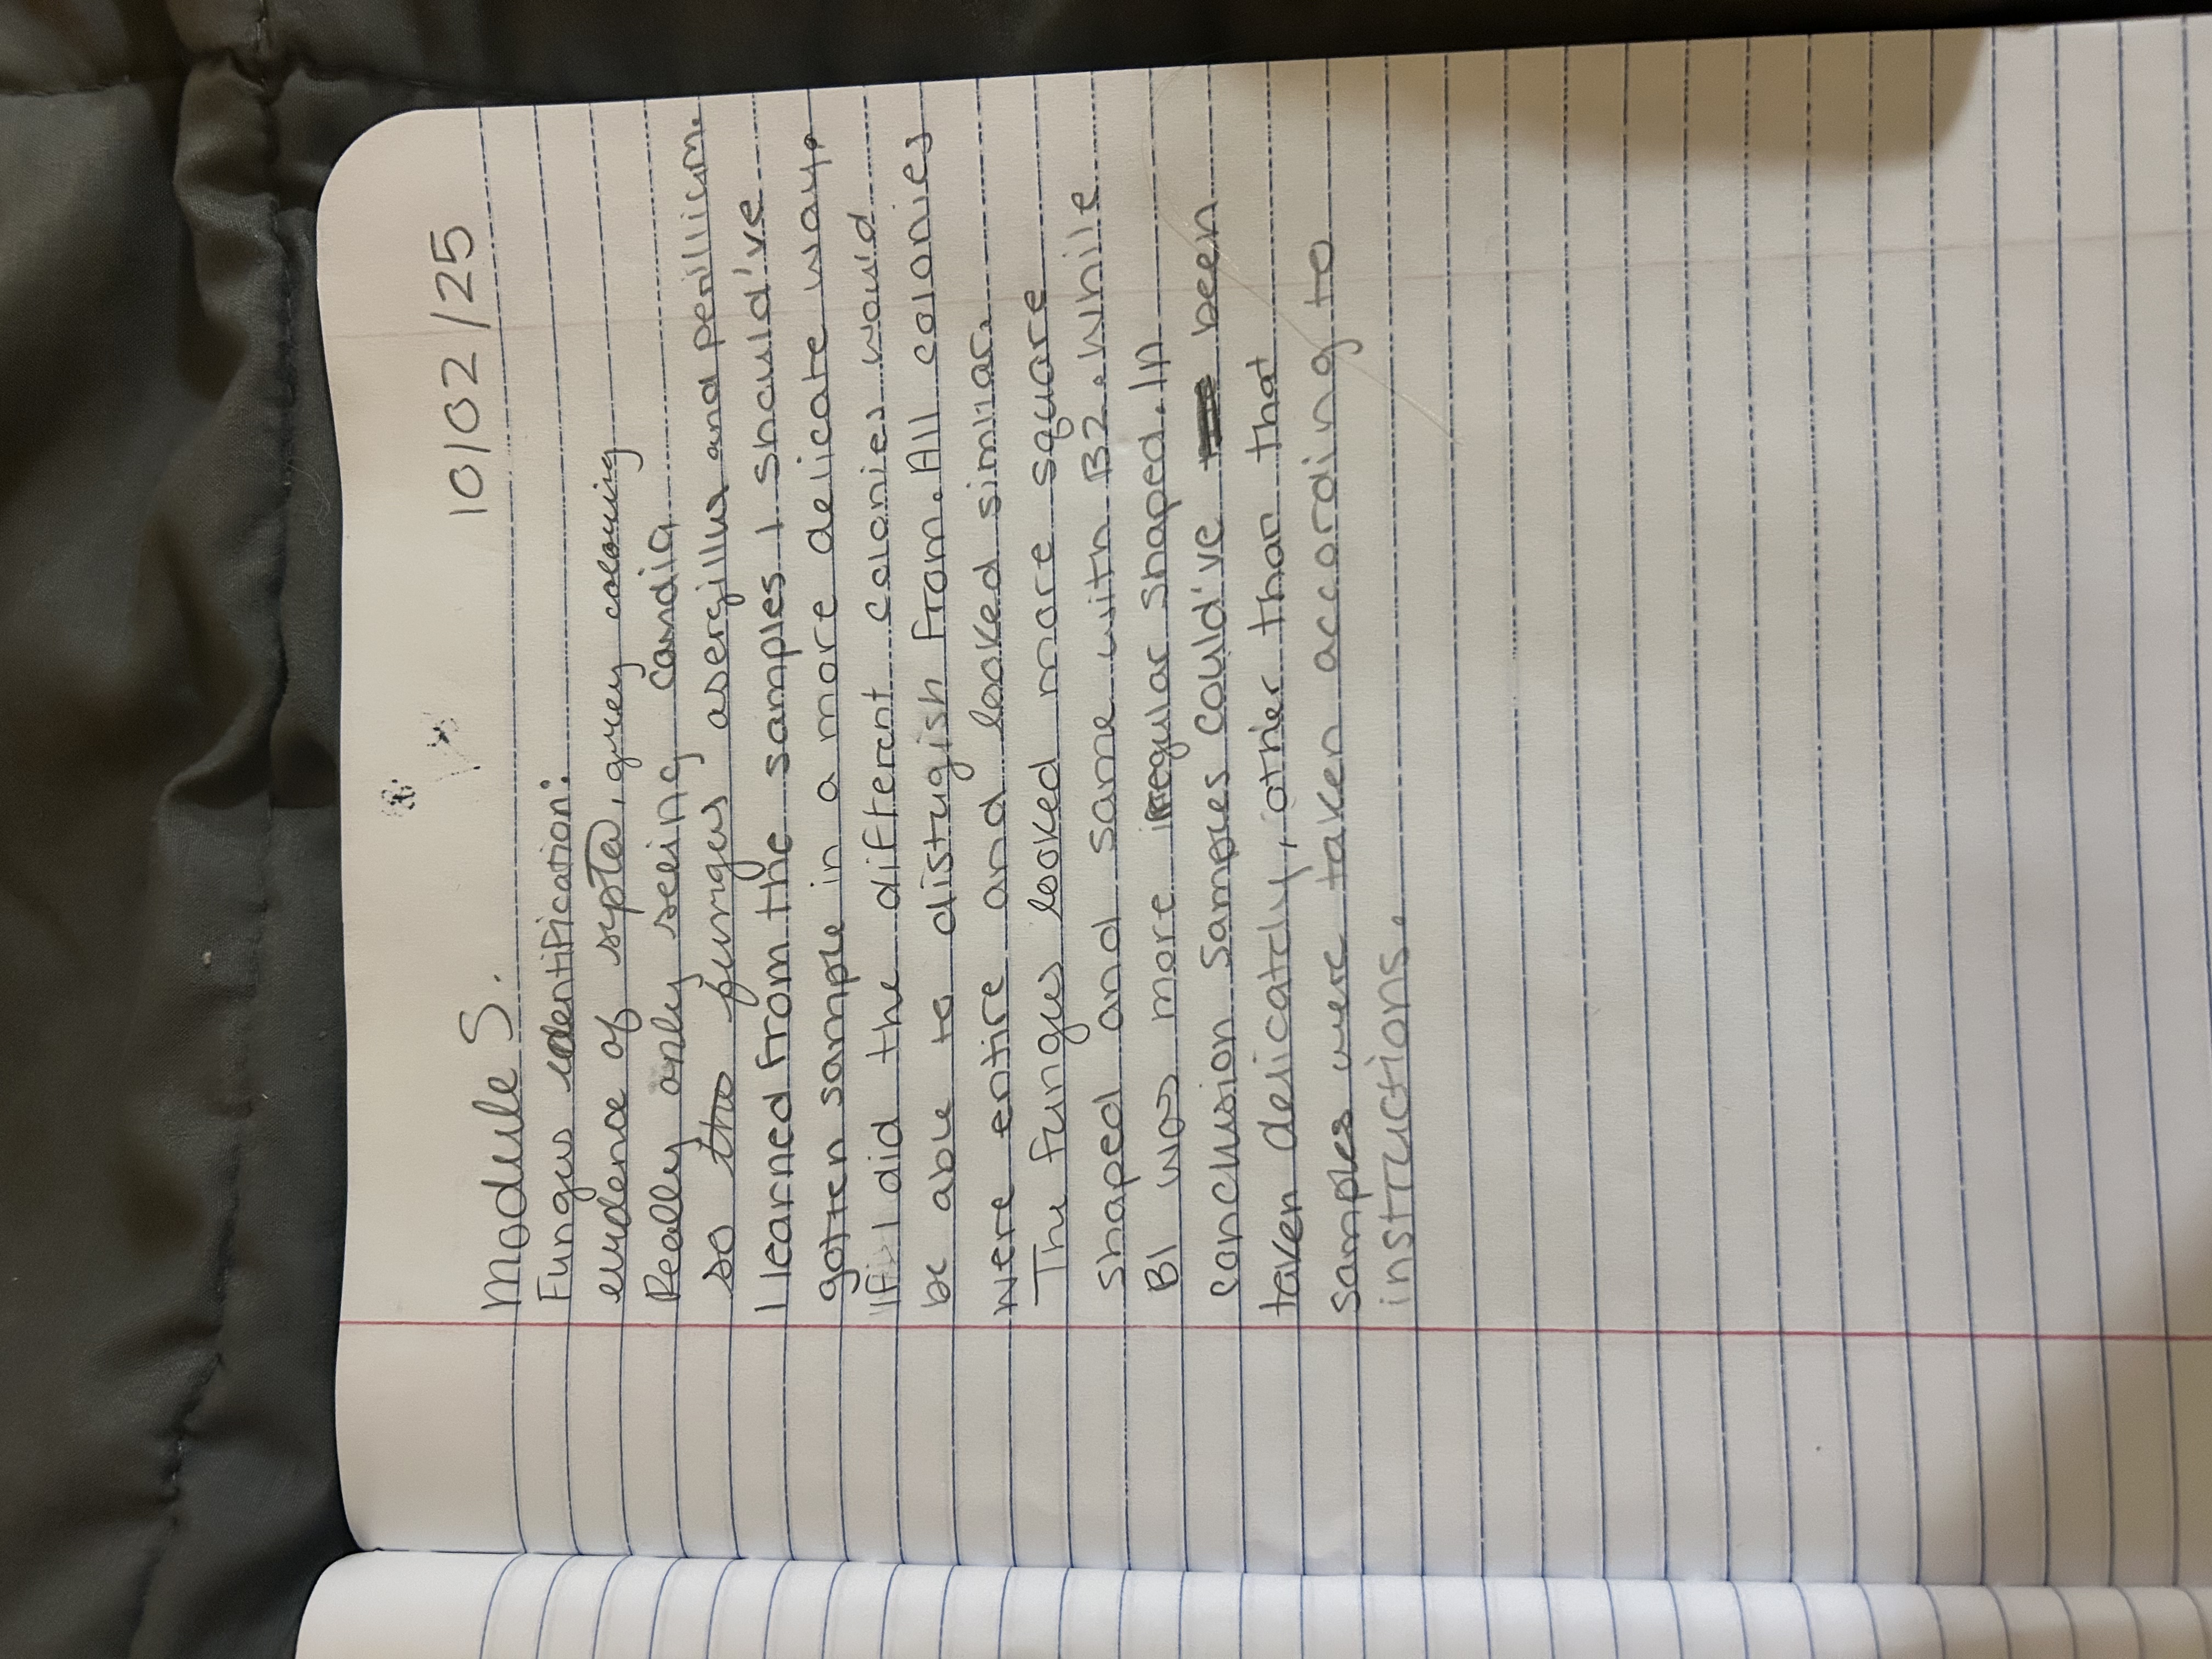 10/02/25
Module 5.
Fungus identification:
evidence of septa, grey coloring
Really only seeing candia
so the fungus asergillus and penillicum.
I learned from the samples I should've
gotten sample in a more delicate way.
If I did the different colonies would
be able to distugish from. All colonies
were entire and looked similiar.
The fungus looked more square
shaped and same with B2. While
B1 was more irregular shaped. In
conclusion samples could've been
taken delicatly, other than that
samples were taken according to
instructions.